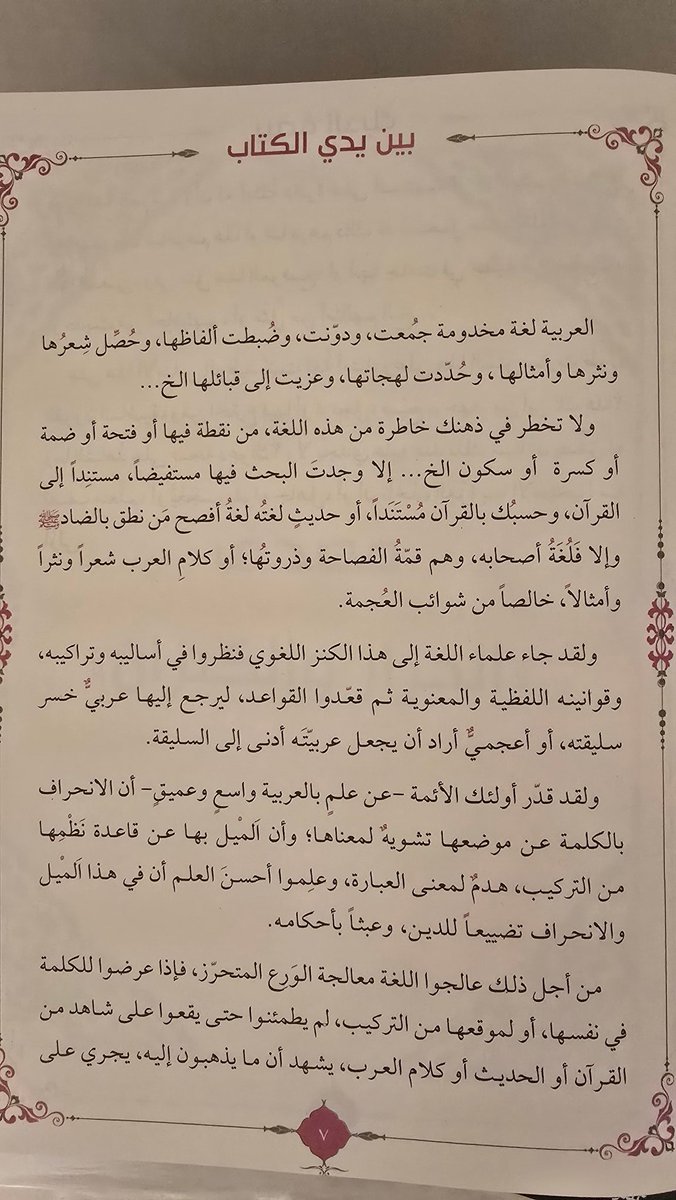 بين يدي الكتاب
العربية لغة مخدومة جمُعت، ودوّنت، وضُبطت ألفاظها، وحُصِّل شِعرُها
ونثرها وأمثالها ، وحُدّدت لهجاتها، وعزيت إلى قبائلها الخ...
ولا تخطر في ذهنك خاطرة من هذه اللغة، من نقطة فيها أو فتحة أو ضمة
أو كسرة أو سكون الخ... إلا وجدتَ البحث فيها مستفيضاً، مستنِداً إلى
القرآن، وحسبُك بالقرآن مُسْتَنَداً، أو حديثٍ لغتُه لغةُ أفصح مَن نطق بالضاد ﷺ
وإلا فَلُغَةُ أصحابه، وهم قمّةُ الفصاحة وذروتهُا؛ أو كلامِ العرب شعراً ونثراً
وأمثالاً، خالصاً من شوائب العُجمة.
ولقد جاء علماء اللغة إلى هذا الكنز اللغوي فنظروا في أساليبه وتراكيبه،
وقوانينه اللفظية والمعنوية ثم قعّدوا القواعد، ليرجع إليها عربيٌّ خسر
سليقته، أو أعجميٌّ أراد أن يجعل عربيّتَه أدنى إلى السليقة.
ولقد قدّر أولئك الأئمة -عن علمٍ بالعربية واسعٍ وعميقٍ- أن الانحراف
بالكلمة عن موضعها تشويهٌ لمعناها؛ وأن اَلميْل بها عن قاعدة نَظْمِها
من التركيب، هدمٌ لمعنى العبارة، وعلِموا أحسنَ العلم أن في هذا اَلميْل
والانحراف تضييعاً للدين، وعبثاً بأحكامه.
من أجل ذلك عالجوا اللغة معالجة الوَرِع المتحرّز، فإذا عرضوا للكلمة
في نفسها، أو لموقعها من التركيب، لم يطمئنوا حتى يقعوا على شاهد من
القرآن أو الحديث أو كلام العرب، يشهد أن ما يذهبون إليه، يجري على
٧